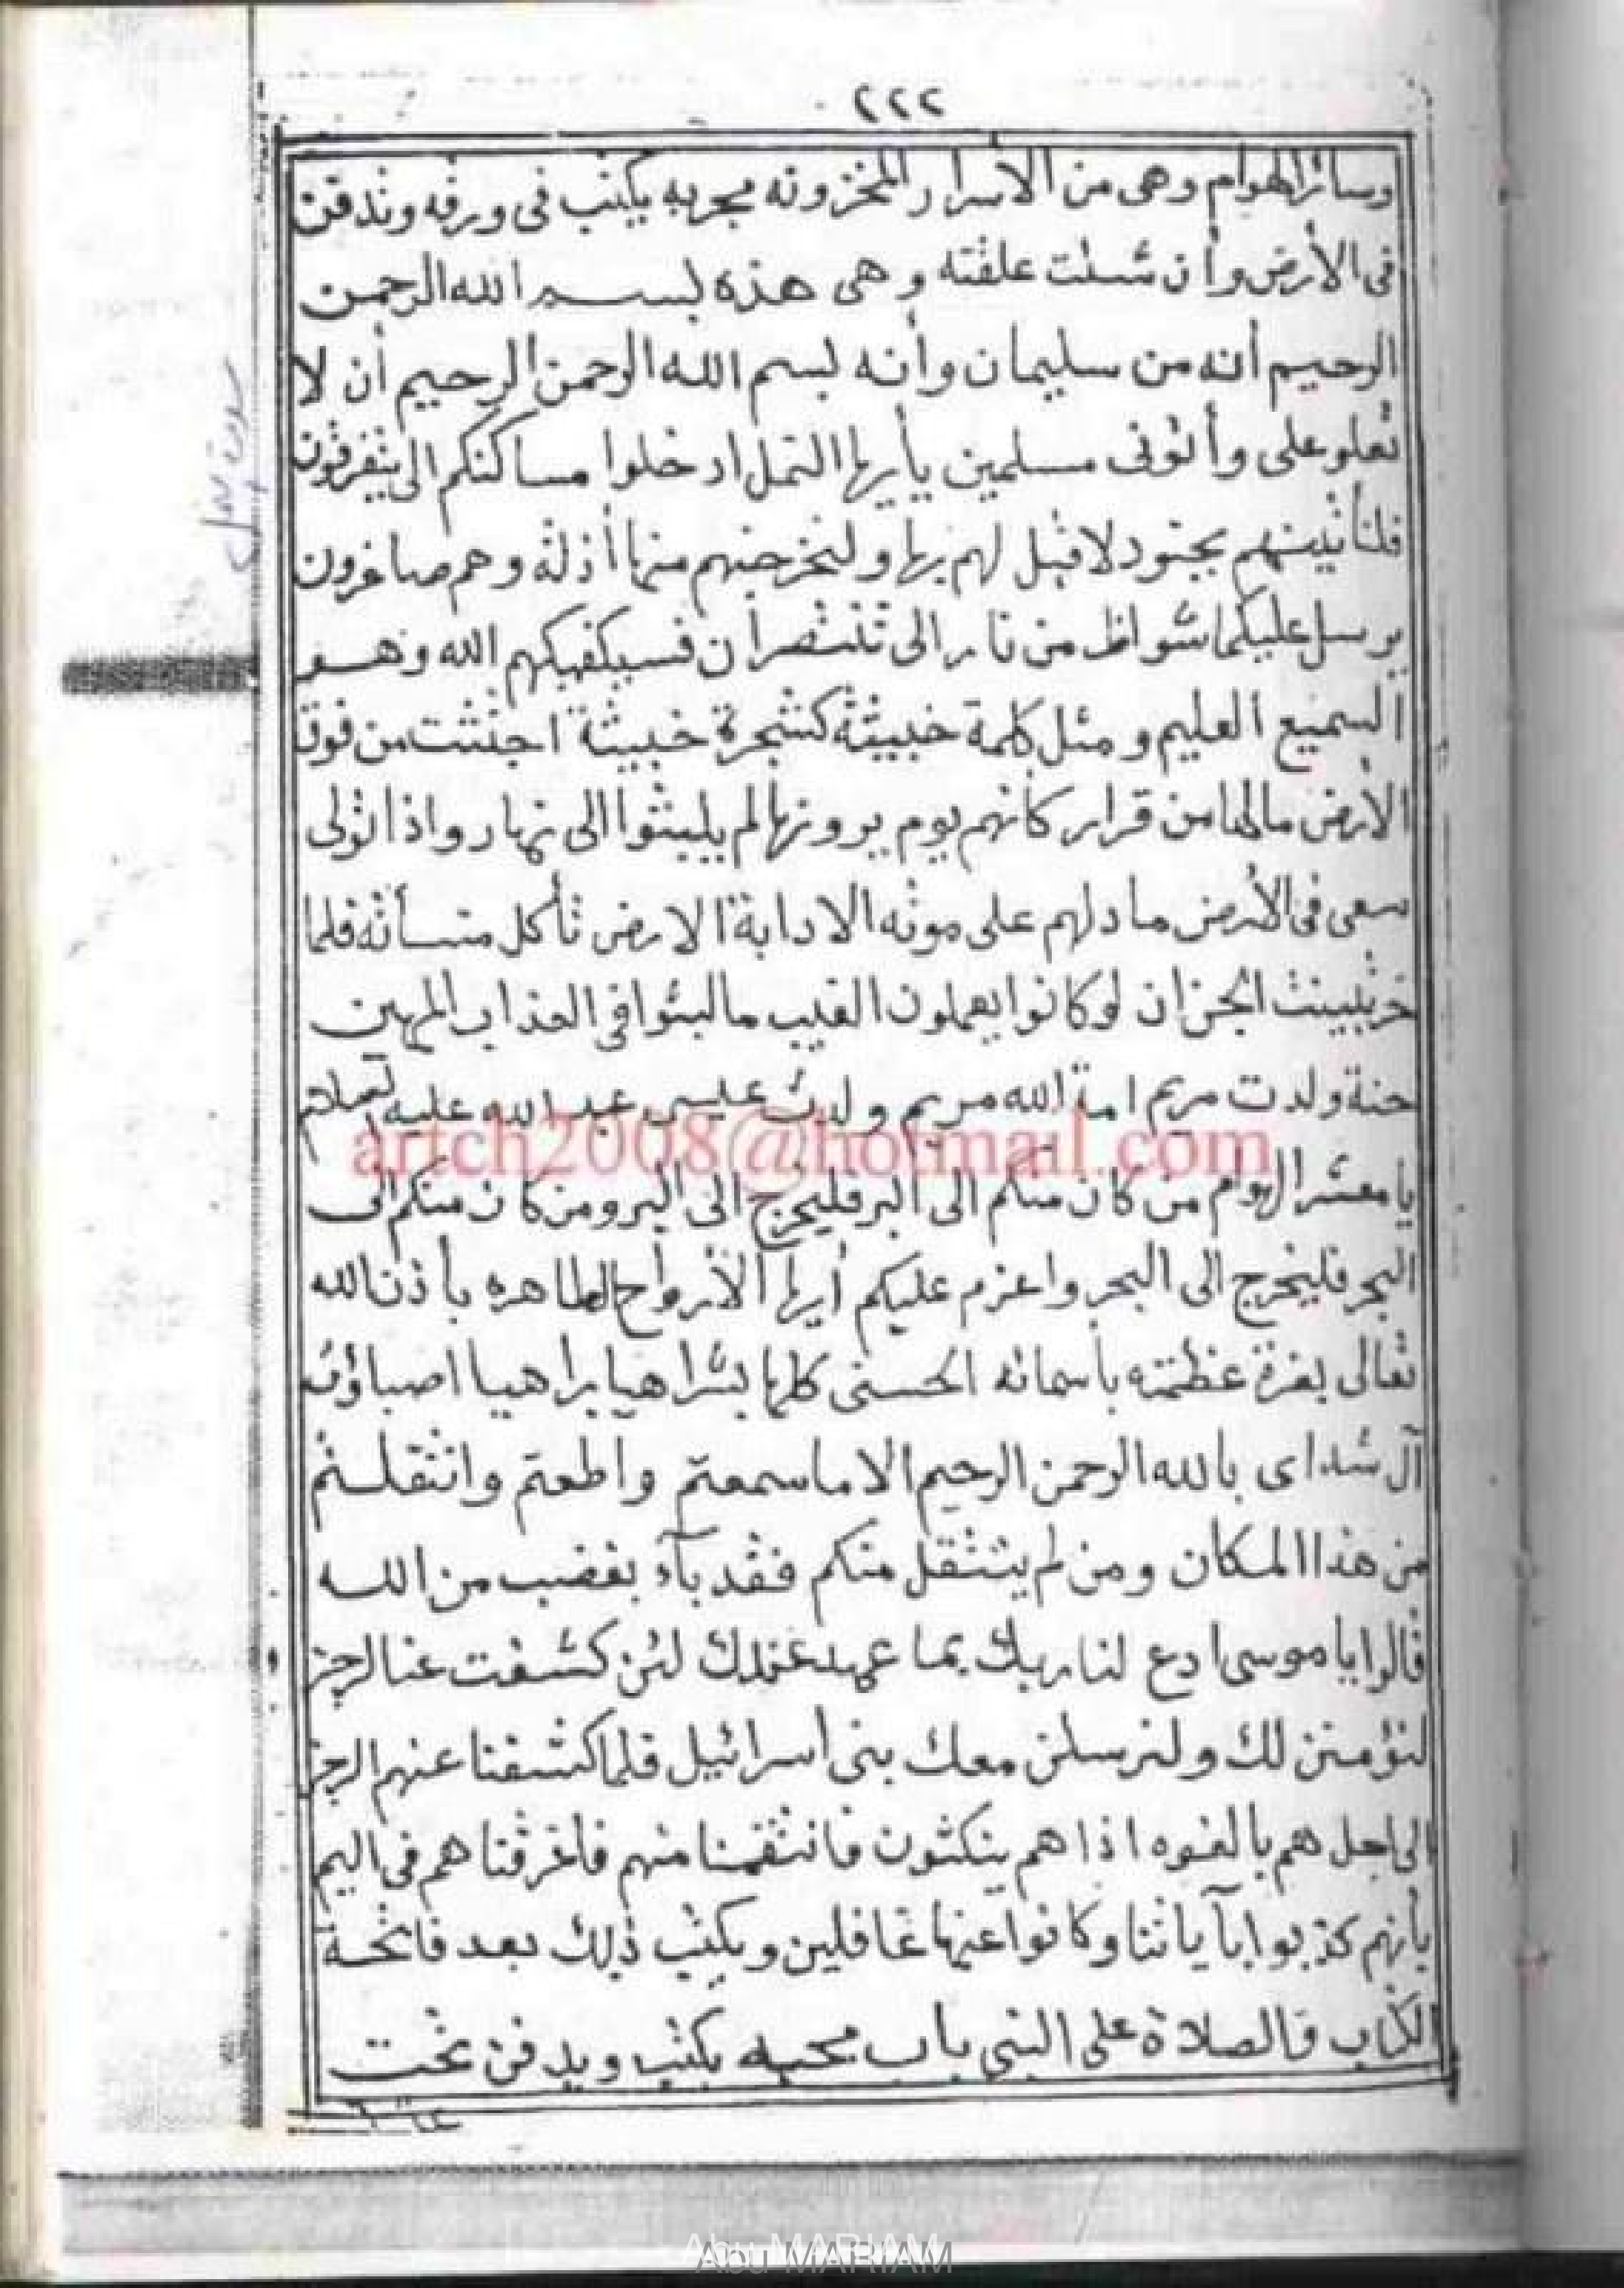 ٢٢٢
وسائر الهوام وهى من الاسرار المخزونه مجربه يكتب فى ورقه وتدفن
فى الأرض وأن شئت علقته وهى هذه بسم الله الرحمن
الرحيم أنه من سليمان وأنه بسم الله الرحمن الرحيم أن لا
تعلو على وألوتى مسلمين يأيها النمل ادخلوا مساكنكم الى يتفرقون
فلنأتينهم بجنود لا قبل لهم بها ولنخرجنهم منها أذلة وهم صاغرون
يرسل عليكما شواظ من نار الى تنتصران فسيكفيكهم الله وهو
السميع العليم ومثل كلمة خبيثة كشجرة خبيثة اجتثت من فوق
الارض مالها من قرار كأنهم يوم يرونها لم يلبثوا الى نهار واذا تولى
سعى فى الأرض ما دلهم على موته الا دابة الارض تأكل منسأته فلما
خر تبينت الجن ان لو كانوا يعملون الغيب ما لبثوا فى العذاب المهين
حنة ولدت مريم امة الله مريم ولدت عيسى عبد الله عليه السلام
artch2008@hotmail.com
يا معشر الهوام من كان منكم الى البر فليخرج الى البر ومن كان منكم الى
البحر فليخرج الى البحر واعزم عليكم أيها الأرواح الطاهره بأذن الله
تعالى بعزة عظمته بأسمائه الحسنى كلها بشراهيا براهيا اصباؤت
آل شداى بالله الرحمن الرحيم الا ما سمعتم واطعتم وانتقلتم
من هذا المكان ومن لم ينتقل منكم فقد بآء بغضب من الله
قالوا يا موسى ادع لنا ربك بما عهد عندك لئن كشفت عنا الرجز
لنؤمنن لك ولنرسلن معك بنى أسرائيل فلما كشفنا عنهم الرجز
الى اجل هم بالغوه اذا هم ينكثون فانتقمنا منهم فاغرقنا هم فى اليم
بأنهم كذبوا بآياتنا وكانوا عنها غافلين ويكتب ذلك بعد فاتحة
الكتاب والصلاة على النبى باب محبه يكتب ويدفن تحت
Abu MARIAM